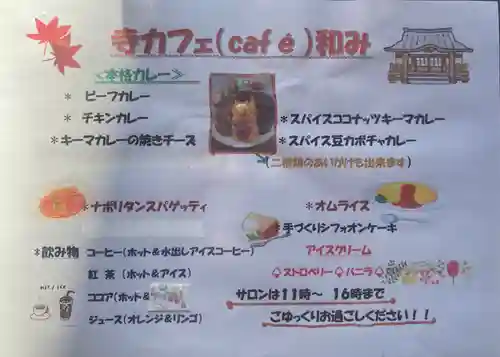 寺カフェ(café)和み
<本格カレー>
* ビーフカレー
* チキンカレー
*キーマカレーの焼きチーズ
*スパイスココナッツキーマカレー
*スパイス豆カボチャカレー
(二種類のあいがけも出来ます)
*ナポリタンスパゲッティ
*オムライス
*手づくりシフォンケーキ
*飲み物 コーヒー(ホット&水出しアイスコーヒー)
紅 茶 (ホット&アイス)
ココア(ホット&
ジュース(オレンジ&リンゴ)
アイスクリーム
♤ストロベリー♤バニラ♤
サロンは11時～ 16時まで
ごゆっくりお過ごしください！！